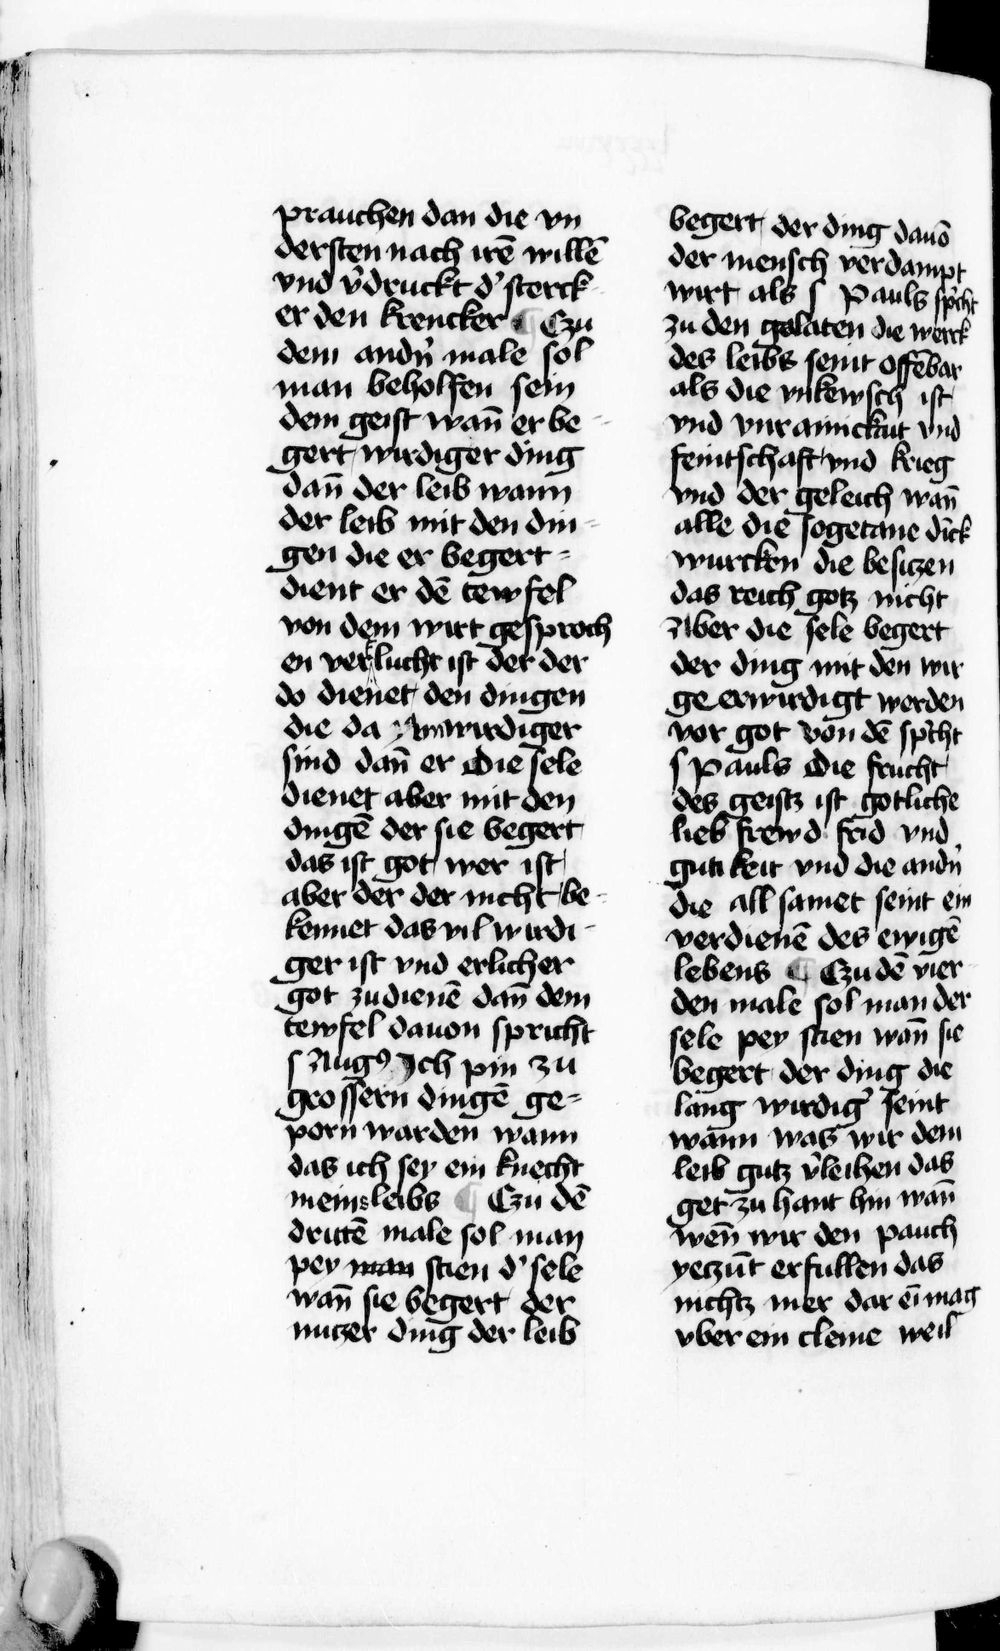 prauchen dan die vn
dersten nach irē willē
vnd v̓druckt d' sterck
er den krencker ¶ Czu
dem andn̓ male sol
man beholfen sein
dem geist wan̄ er be
gert wirdiger ding
dan̄ der leib wann
der leib mit den din=
gen die er begert=
dient er dē tewfel
von dem wirt gesproch
en verflucht ist der der
do dienet den dingen
die da vnwirdiger
sind dan̄ er Die sele
dienet aber mit den
dingē der sie begert
das ist got wer ist
aber der der nicht be-
kennet das vil wirdi-
ger ist vnd erlicher
got zu dienē dan̄ dem
tewfel dauon spricht
s Augꝰ Ich pin zu
grossern dingē ge=
porn warden wann
das ich sey ein knecht
meins leibs ¶ Czu dē
drittē male sol man
pey man sten d' sele
wan̄ sie begert der
nutzer ding der leib
begert der ding dauō
der mensch verdampt
wirt als s Pauls sp̓cht
zu den galaten die werck
des leibs seint offēbar
als die vnkewsch ist
vnd vnrainickait vnd
feintschaft vnd krieg
vnd der geleich wan̄
alle die sogetane dick
wurcken die besitzen
das reich gotz nicht
Aber die sele begert
der ding mit den wir
ge erwirdigt werden
vor got von dē sp̓cht
s Pauls Die frucht
des geistz ist gotliche
lieb frewd frid vnd
gutikeit vnd die andn̓
die all samet seint ein
verdienē des ewigē
lebens ¶ Czu dē vier
den male sol man der
sele pey sten wan̄ sie
begert der ding die
lang wirdig' seint
wann was wir dem
leib gutz v̓leihen das
get zu hant hin wan̄
wen̄ wir den pauch
yetzūt erfullen das
nichtz mer dar ei̅ mag
vber ein cleine weil